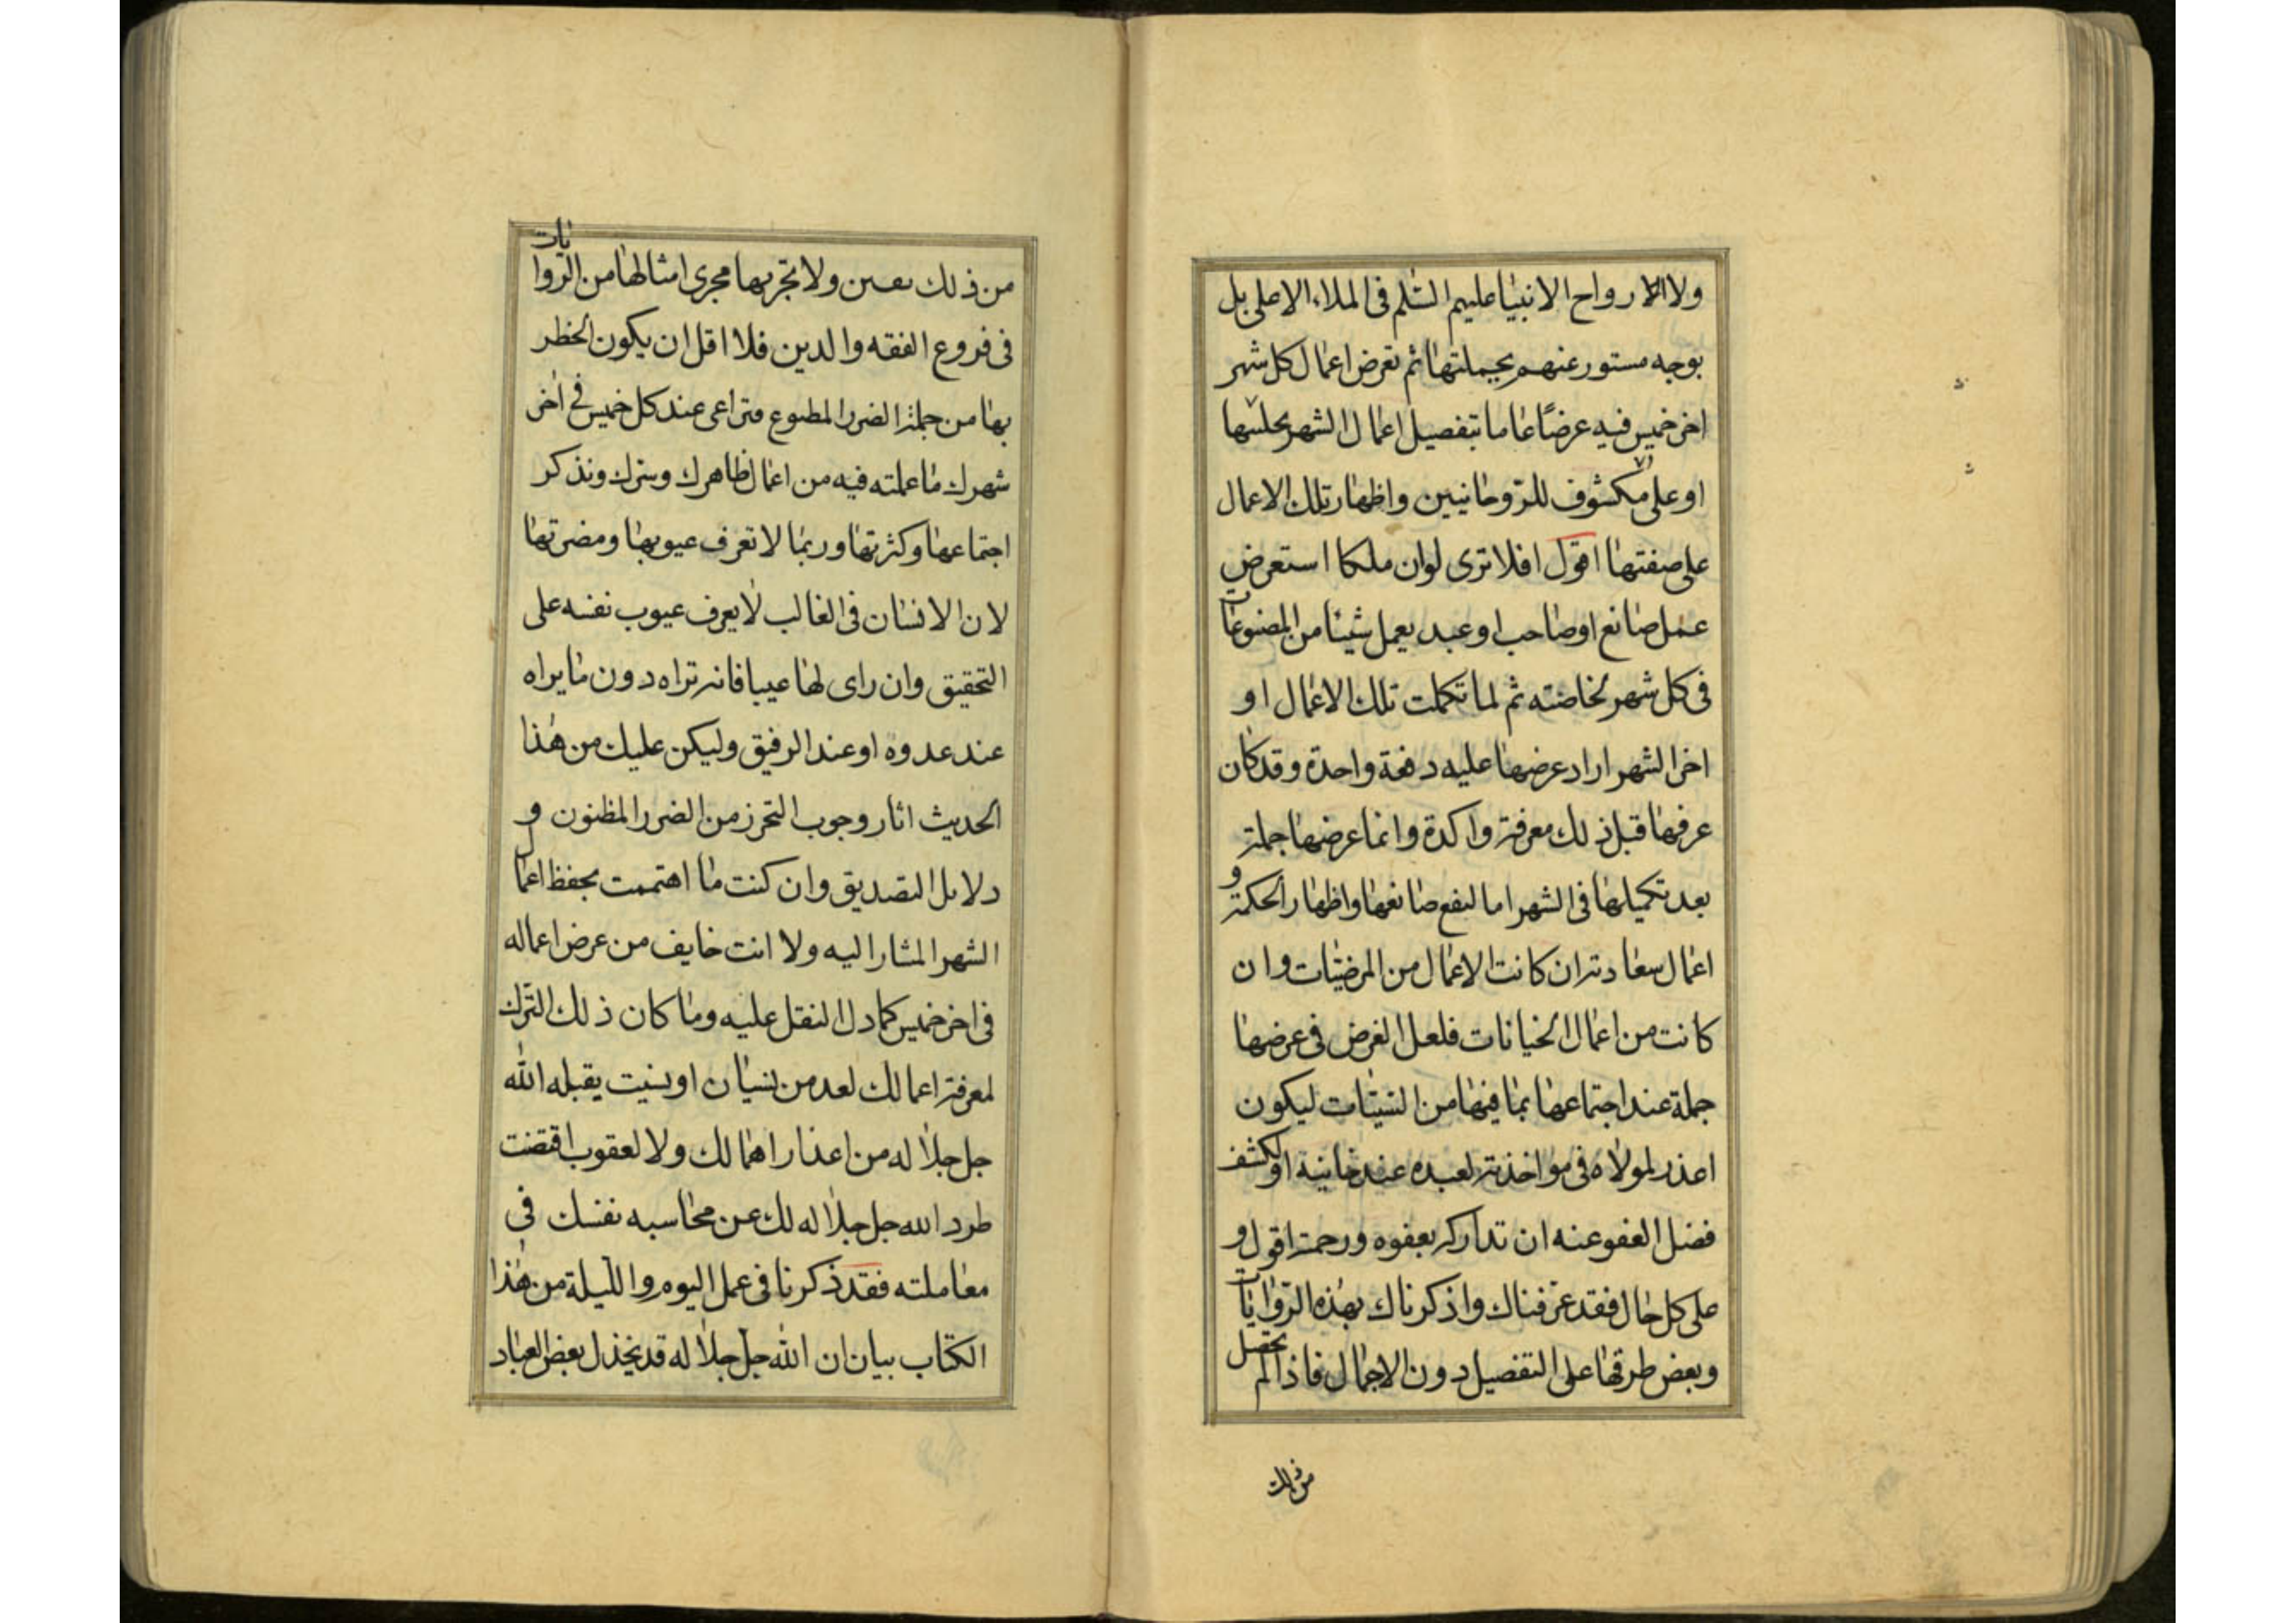 ولا الارواح الانبيا عليهم السّلم فى الملاء الاعلى بل
بوجه مستور عنهم بجملتها ثم تعرض اعمال كل شهر
اخر خميس فيه عرضًا عاما بتفصيل اعمال الشهر بجلتها
او على مكشوف للرّوحانيين واظهار تلك الاعمال
على صفتها اقول افلا ترى لو ان ملكا استعرض
عمل صانع او صاحب او عبد يعمل شيئا من المصنوعات
فى كل شهر لخاصته ثم لما تكملت تلك الاعمال او
اخر الشهر اراد عرضها عليه دفعة واحدة وقد كان
عرفها قبل ذلك معرفة واكدة وانما عرضها جملة
بعد تكميلها فى الشهر اما لنفع صانعها واظهار الحكمة و
اعمال سعادته ان كانت الاعمال من المرضيّات وان
كانت من اعمال الخيانات فلعل الغرض فى عرضها
جملة عند اجتماعها بما فيها من السّيئات ليكون
اعذر لمولاه فى مواخذته لعبده عند خانيه او لكشف
فضل العفو عنه ان تداركه بعفوه ورحمته اقول و
على كل حال فقد عرّفناك واذكرناك بهذه الرّوايات
وبعض طرقها على التفصيل دون الاجمال فاذا لم تحصل
من ذلك
من ذلك بعين ولا تجّربها مجرى امثالها من الرّوايات
فى فروع الفقه والدين فلا اقل ان يكون الخطر
بها من جملة الضرر المطبوع فتراعى عند كل خميس فى اخر
شهرك ما عملته فيه من اعمال ظاهرك وسرك ونذكر
اجتماعها وكثرتها وربما لا تعرف عيوبها ومضرتها
لان الانسان فى الغالب لا يعرف عيوب نفسه على
التحقيق وان راى لها عيبا فانه تراه دون ما يراه
عند عدوه او عند الرفيق وليكن عليك من هذا
الحديث اثار وجوب التحرز من الضرر المظنون و
دلايل التصديق وان كنت ما اهتممت بحفظ اعمال
الشهر المشار اليه ولا انت خايف من عرض اعماله
فى اخر خميس كما دل النقل عليه وما كان ذلك التّرك
لمعرفة اعمالك لعدمن نسيان او نسيت يقبله الله
جل جلاله من اعذار اهمالك ولا لعقوب اقتضت
طرد الله جل جلاله لك عن محاسبه نفسك فى
معاملته فقد ذكرنا فى عمل اليوم والليلة من هذا
الكتاب بيان ان الله جل جلاله قد يخذل بعض العباد